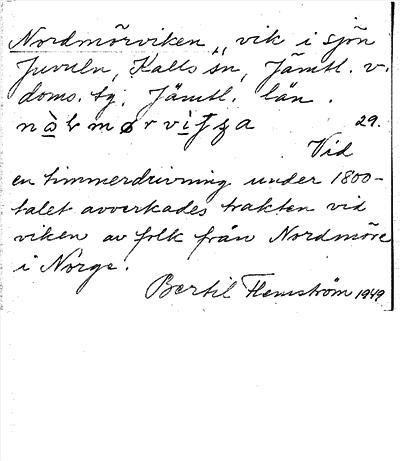 Nordmörviken, vik i sjön
Juvuln, Kalls sn, Jämtl. v.
doms. tg. Jämtl. län.
29.
Vid
en timmerdrivning under 1800-
talet avverkades trakten vid
viken av folk från Nordmöre
i Norge.
Bertil Flemström 1949